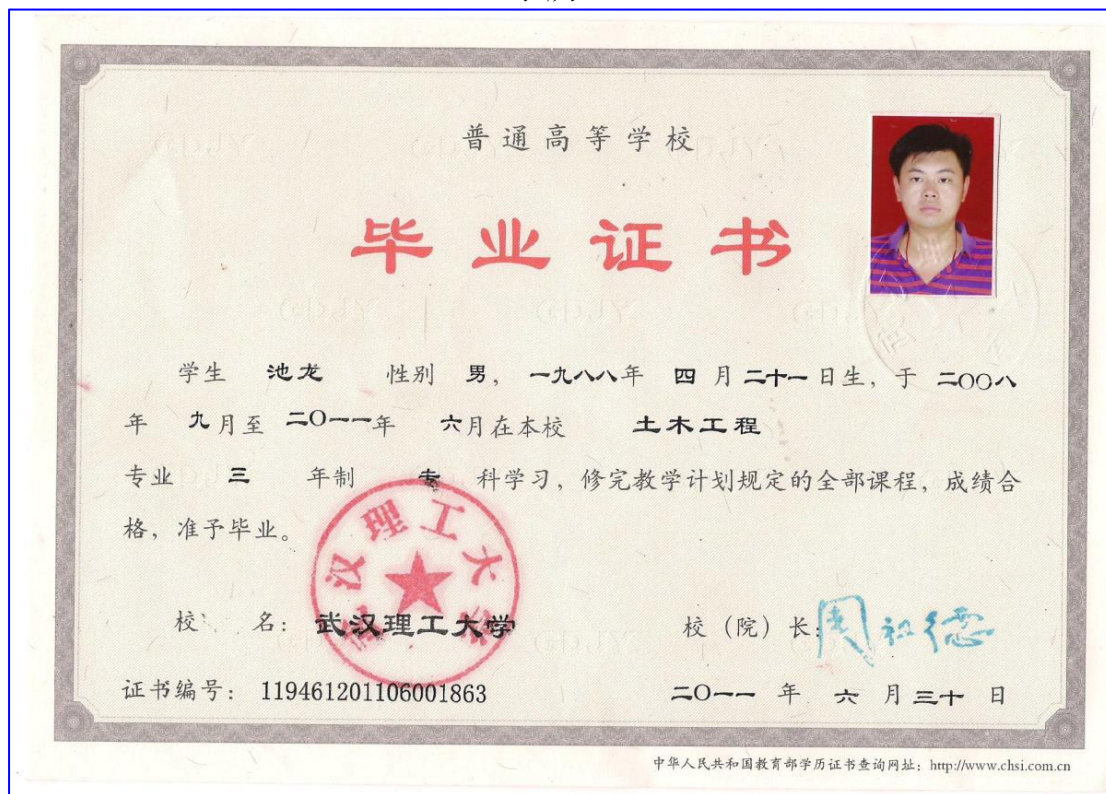 普通高等学校
毕业证书
学生 池龙 性别 男，一九八八年 四 月 二十一 日生，于 二〇〇八
年 九月至 二〇一一年 六月在本校 土木工程
专业 三 年制 专 科学习，修完教学计划规定的全部课程，成绩合
格，准予毕业。
武汉理工大学
校 名：武汉理工大学 校（院）长：周祖德
证书编号：119461201106001863 二〇一一 年 六 月 三十 日
中华人民共和国教育部学历证书查询网址：http://www.chsi.com.cn